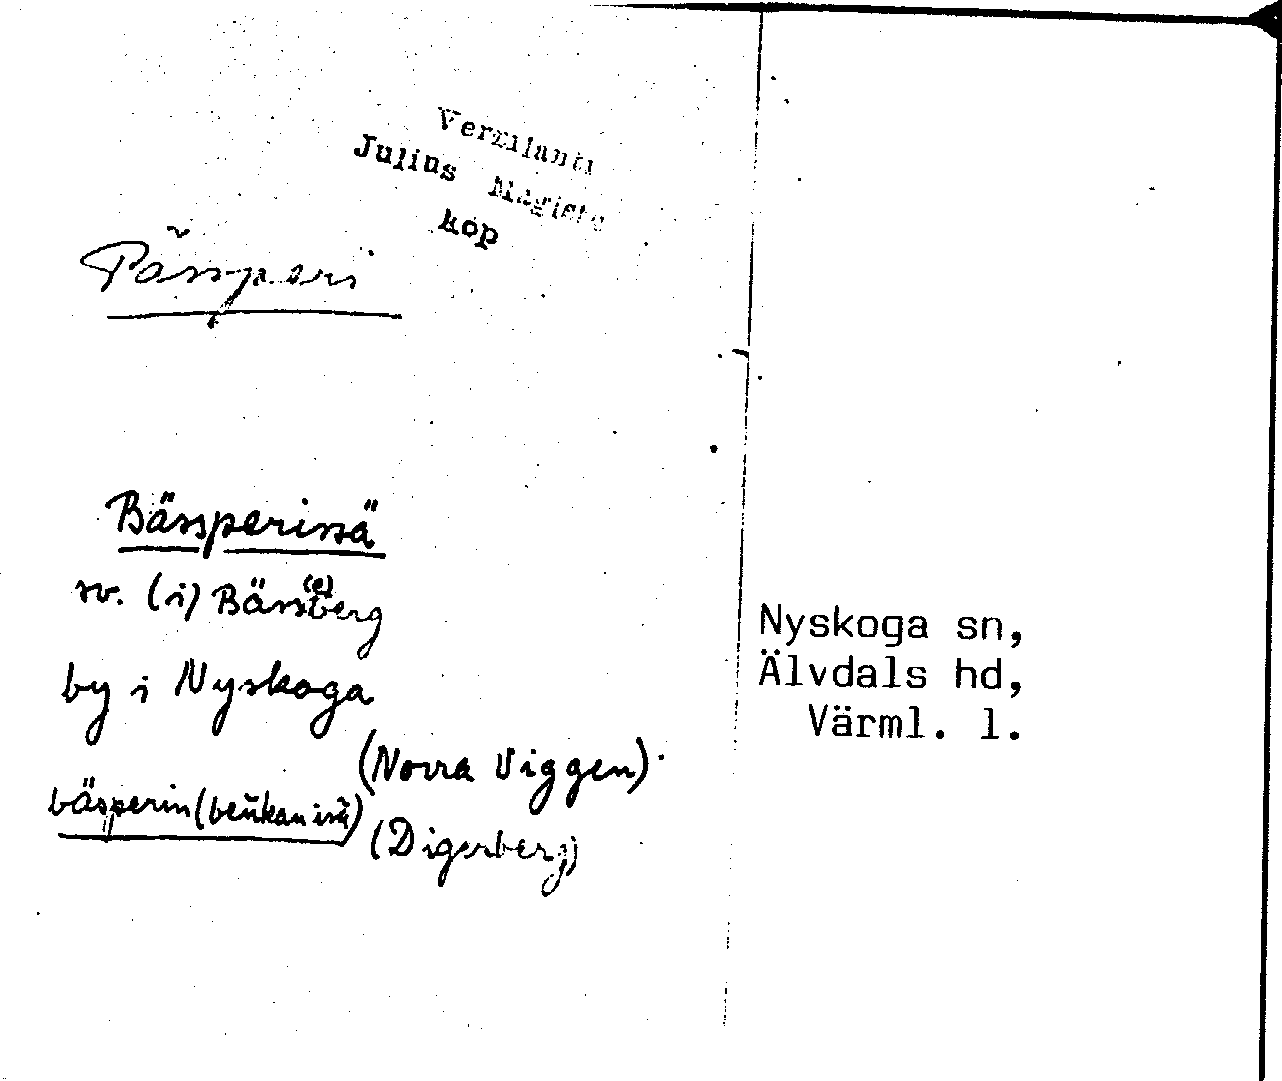 Vermlanti
Julius Mägiste
kop
Pässperi
Bässperissä
sv. (i) Bäss(e)berg
by i Nyskoga
(Norra Viggen)
bäsperin (
(Digerberg)
Nyskoga sn,
Älvdals hd,
Värml. l.